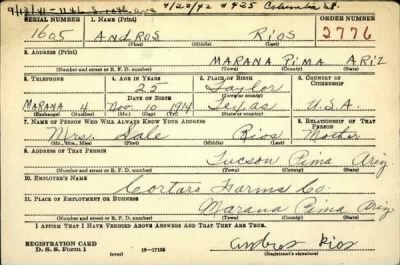 9/13/41 - 1121 S. 10th ave 4/22/42 #425 Columbia St.
SERIAL NUMBER 1. NAME (Print) ORDER NUMBER
1605 ANDROS RIOS 2776
(First) (Middle) (Last)
2. ADDRESS (Print)
MARANA PIMA ARIZ
(Number and street or R. F. D. number) (Town) (County) (State)
3. TELEPHONE 4. AGE IN YEARS 5. PLACE OF BIRTH 6. COUNTRY OF CITIZENSHIP
25 Taylor
DATE OF BIRTH (Town or county)
MARANA 4 Nov. 10 1914 Texas U.S.A.
(Exchange) (Number) (Mo.) (Day) (Yr.) (State or country)
7. NAME OF PERSON WHO WILL ALWAYS KNOW YOUR ADDRESS 8. RELATIONSHIP OF THAT PERSON
Mrs. Sale Rios Mother
(Mr., Mrs., Miss) (First) (Middle) (Last)
9. ADDRESS OF THAT PERSON
Tucson Pima Ariz
(Number and street or R. F. D. number) (Town) (County) (State)
10. EMPLOYER'S NAME
Cortaro Farms Co.
11. PLACE OF EMPLOYMENT OR BUSINESS
Marana Pima Ariz
(Number and street or R. F. D. number) (Town) (County) (State)
I AFFIRM THAT I HAVE VERIFIED ABOVE ANSWERS AND THAT THEY ARE TRUE.
REGISTRATION CARD
D. S. S. Form 1 (over) 16—17105 Andros Rios
(Registrant's signature)